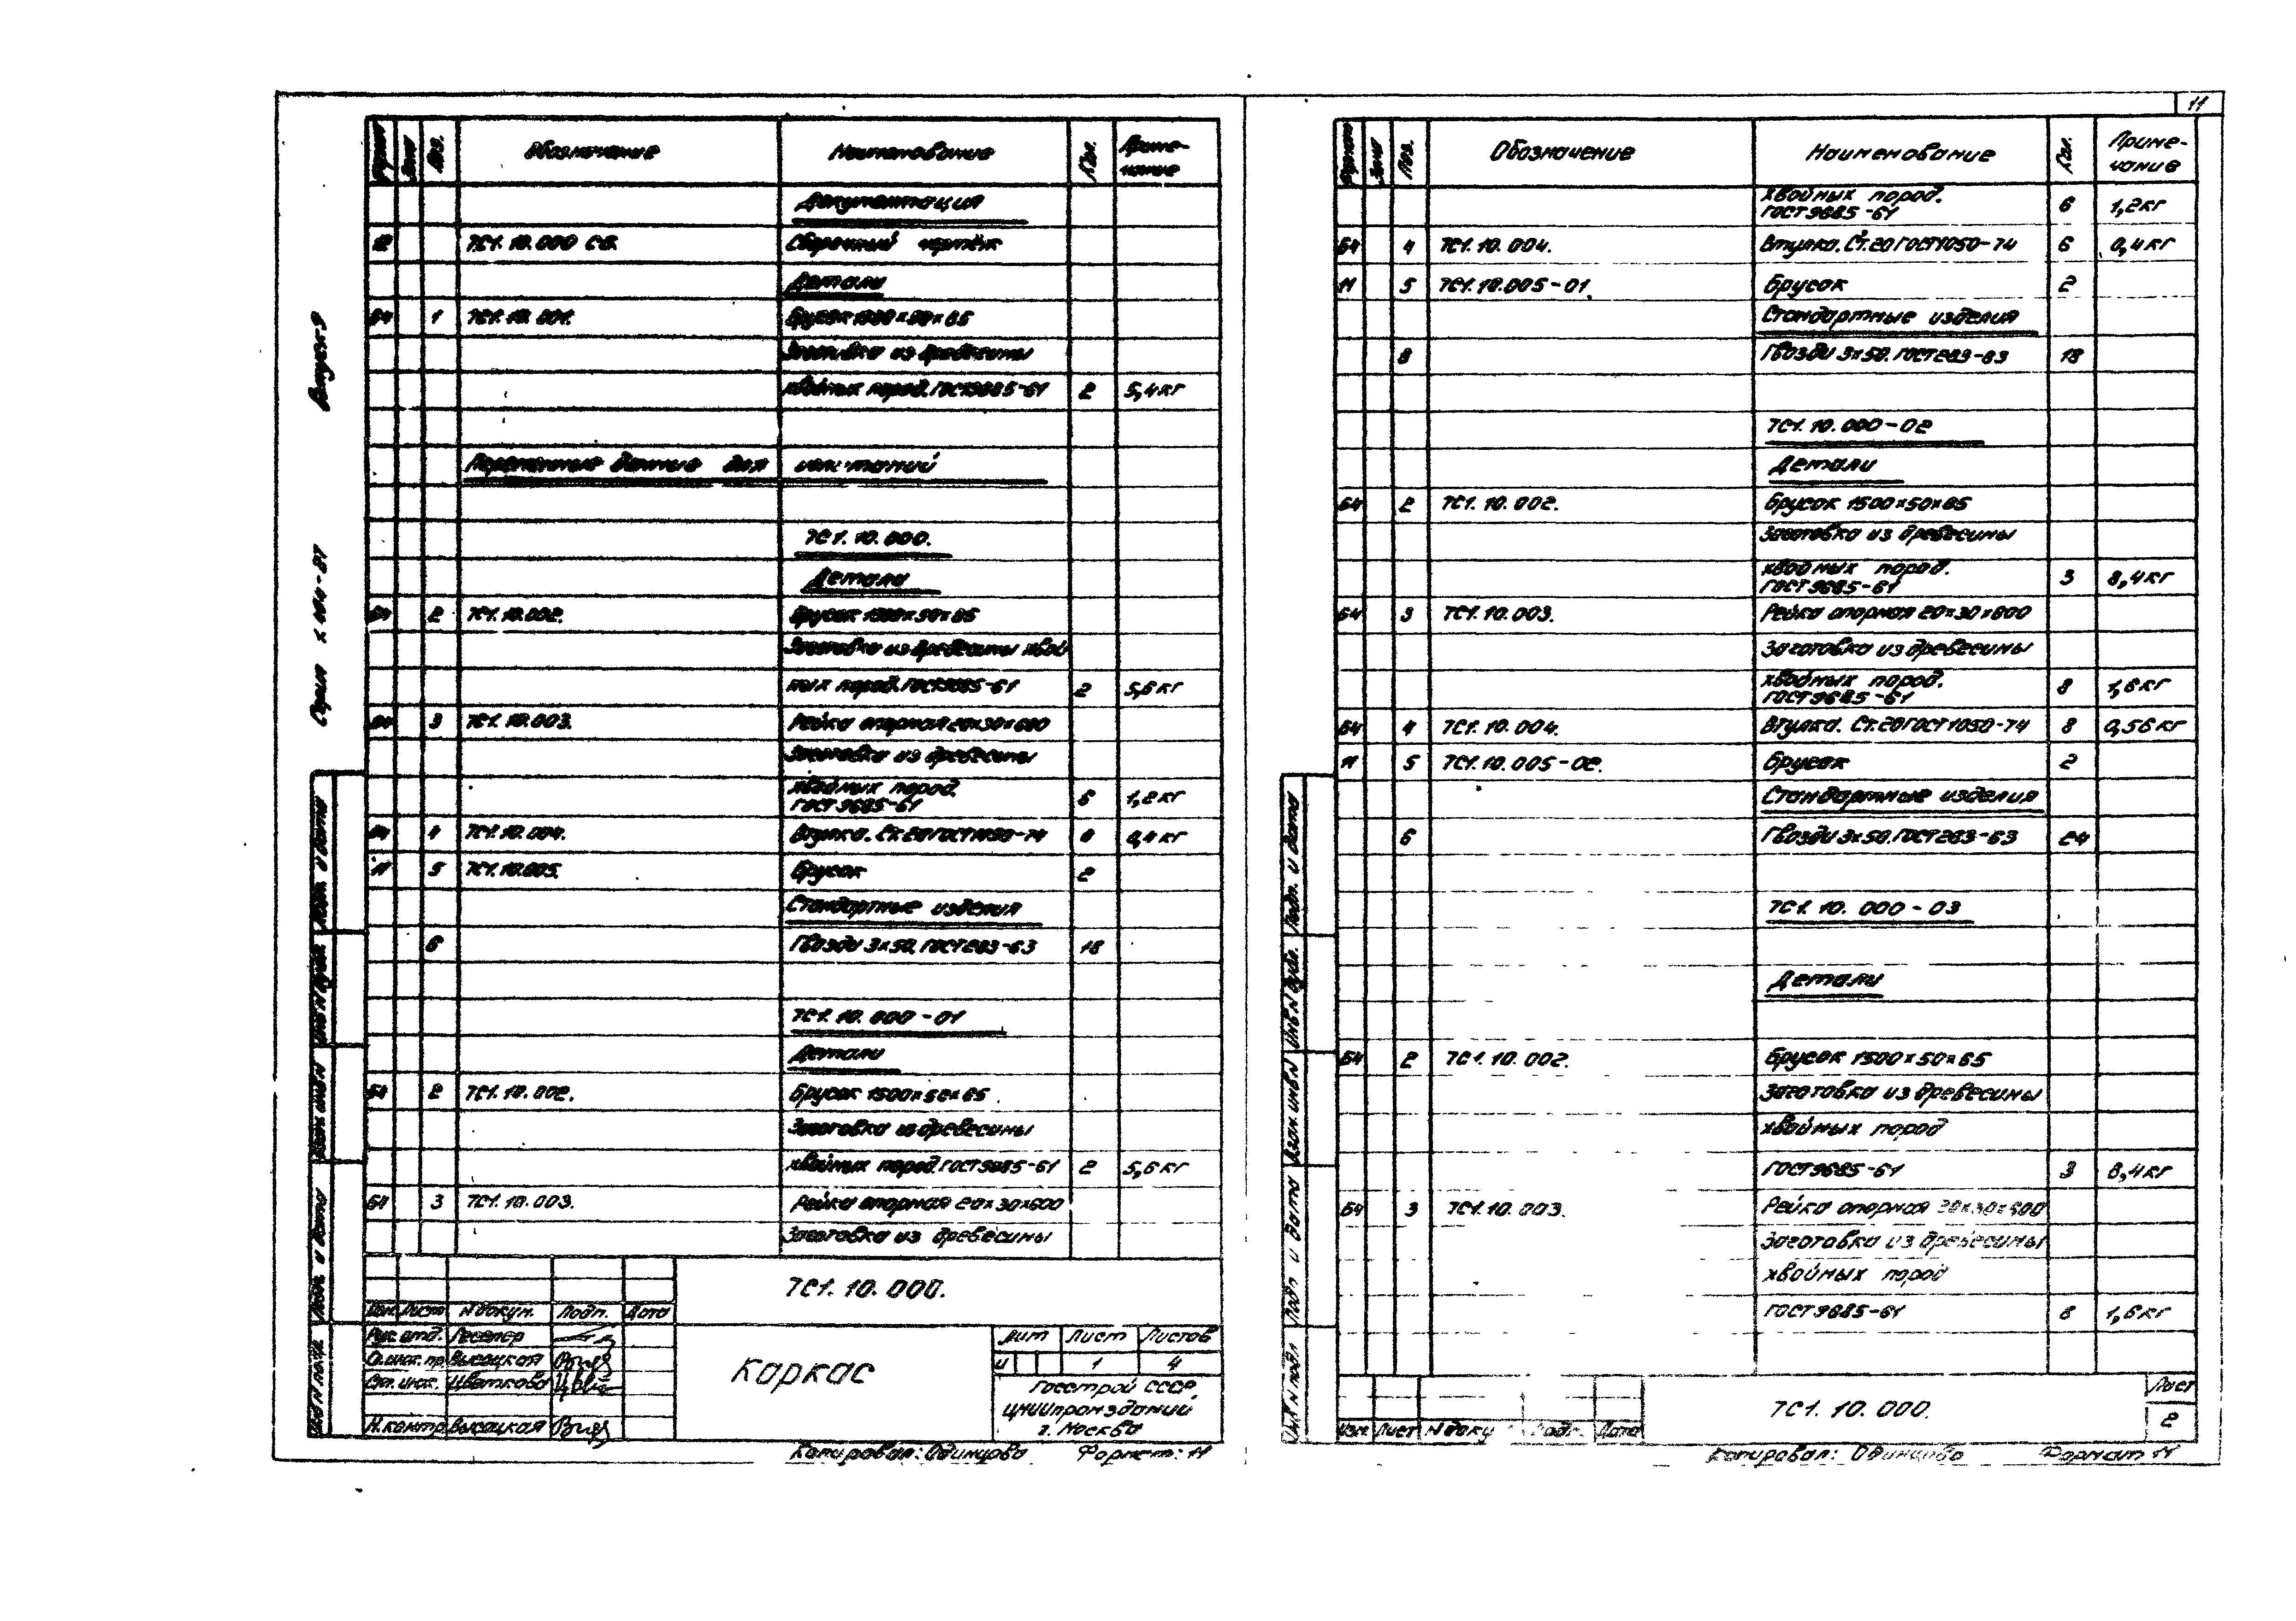 11
Выпуск-9
Серия
Формат Зона Поз. Обозначение Наименование Кол. Приме-
чание
Документация
12 7С1.10.000 СБ. Сборочный чертёж
Детали
БЧ 1 7С1.10.001. Брусок
Заготовка из древесины
хвойных пород. ГОСТ9685-61 2 5,4кг
Переменные данные для исполнений
7С1.10.000.
Детали
БЧ 2 7С1.10.002. Брусок
Заготовка из древесины хвой
ных пород. ГОСТ9685-61 2 5,6кг
БЧ 3 7С1.10.003. Рейка опорная 20×30×600
Заготовка из древесины
хвойных пород.
ГОСТ9685-61 6 1,2кг
БЧ 4 7С1.10.004. Втулка. Ст.20ГОСТ1050-74 0,4кг
11 5 7С1.10.005. Брусок 2
Стандартные изделия
6 Гвозди 3×50. ГОСТ283-63 18
7С1.10.000-01
Детали
БЧ 2 7С1.10.002. Брусок 1500×50×65
Заготовка из древесины
хвойных пород. ГОСТ9685-61 2 5,6кг
БЧ 3 7С1.10.003. Рейка опорная 20×30×600
Заготовка из древесины
7С1.10.000.
Изм. Лист N докум. Подп. Дата
Рук. отд. Гесслер
Высоцкая
Ст. инж. Цветкова
Н.контр. Высоцкая
Каркас
Лит Лист Листов
И 1 4
Госстрой СССР
ЦНИИпромзданий
г. Москва
Копировал: Одинцова Формат: 11
Инв N подл. Подп. и дата Взам инв N Инв N дубл. Подп. и дата
Формат Зона Поз. Обозначение Наименование Кол. Приме-
чание
хвойных пород.
ГОСТ9685-61 6 1,2кг
БЧ 4 7С1.10.004. Втулка. Ст.20ГОСТ1050-74 6 0,4кг
11 5 7С1.10.005-01. Брусок 2
Стандартные изделия
8 Гвозди 3×50. ГОСТ283-63 18
7С1.10.000-02
Детали
БЧ 2 7С1.10.002. Брусок 1500×50×65
Заготовка из древесины
хвойных пород.
ГОСТ9685-61 3 8,4кг
БЧ 3 7С1.10.003. Рейка опорная 20×30×600
Заготовка из древесины
хвойных пород.
ГОСТ9685-61 8 1,6кг
БЧ 4 7С1.10.004. Втулка. Ст.20ГОСТ1050-74 8 0,56кг
11 5 7С1.10.005-02. Брусок 2
Стандартные изделия
6 Гвозди 3×50. ГОСТ283-63 24
7С1.10.000-03
Детали
БЧ 2 7С1.10.002. Брусок 1500×50×65
Заготовка из древесины
хвойных пород
ГОСТ9685-61 3 8,4кг
БЧ 3 7С1.10.003. Рейка опорная 20×30×600
Заготовка из древесины
хвойных пород
ГОСТ9685-61 8 1,6кг
7С1.10.000.
Лист
2
Изм. Лист N докум Подп. Дата
Копировал: Одинцова Формат 11
Инв N подл Подп и дата Взам инв N Инв N дубл. Подп. и дата